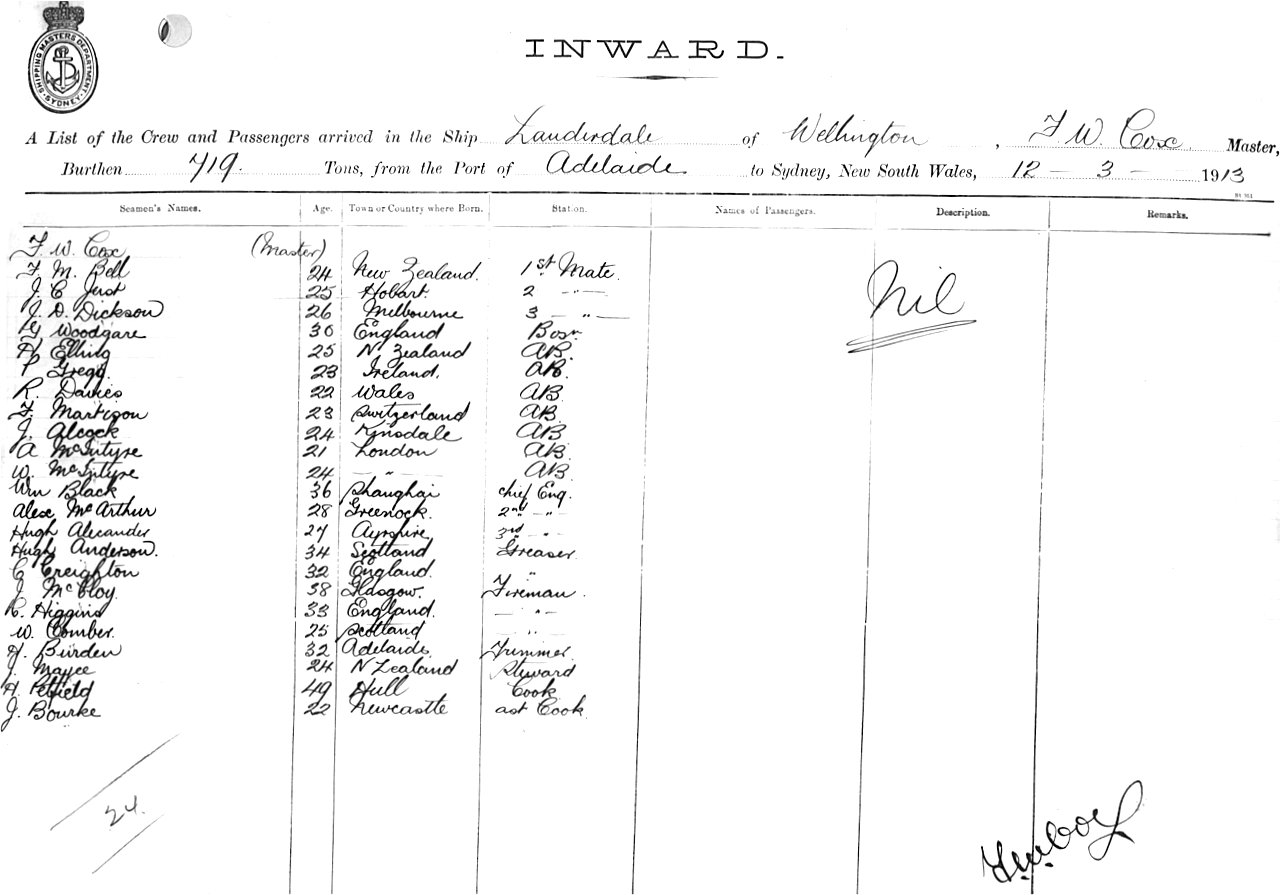 SHIPPING MASTERS DEPARTMENT. SYDNEY.
INWARD.
A List of the Crew and Passengers arrived in the Ship Lauderdale of Wellington, F. W. Cox Master,
Burthen 719. Tons, from the Port of Adelaide to Sydney, New South Wales, 12 - 3 - 1913
Seamen's Names. Age. Town or Country where Born. Station. Names of Passengers. Description. Remarks.
F. W. Cox (Master)
F. M. Bell 24 New Zealand. 1st Mate. Nil
J. C. 25 Hobart. 2 - " -
J. D. Dickson 26 Melbourne 3 - " -
Woodgare 30 England Bosn.
H. Elling 25 N Zealand AB.
P Gregg 23 Ireland. AB.
R. Davies 22 Wales AB.
F. Martison 23 Switzerland AB.
J. Alcock 24 Kinsdale AB.
A McIntyre 21 London AB.
W. McIntyre 24 - " - AB
Wm Black 36 Shanghai chief Eng.
Alex McArthur 28 Greenock. 2nd " -
Hugh Alexander 27 Ayrshire, 3rd " -
Hugh Anderson. 34 Scotland Greaser.
C Creighton 32 England. "
J McCloy. 38 Glasgow. Fireman.
R. Higgins 33 England. - " -
W. Comber. 25 Scotland - " -
H. Burden 32 Adelaide. Trimmer.
J. Mayce 24 N Zealand Steward
H. Petfield 49 Hull Cook
J. Bourke 22 Newcastle ast Cook.
24.
F. W. Cox